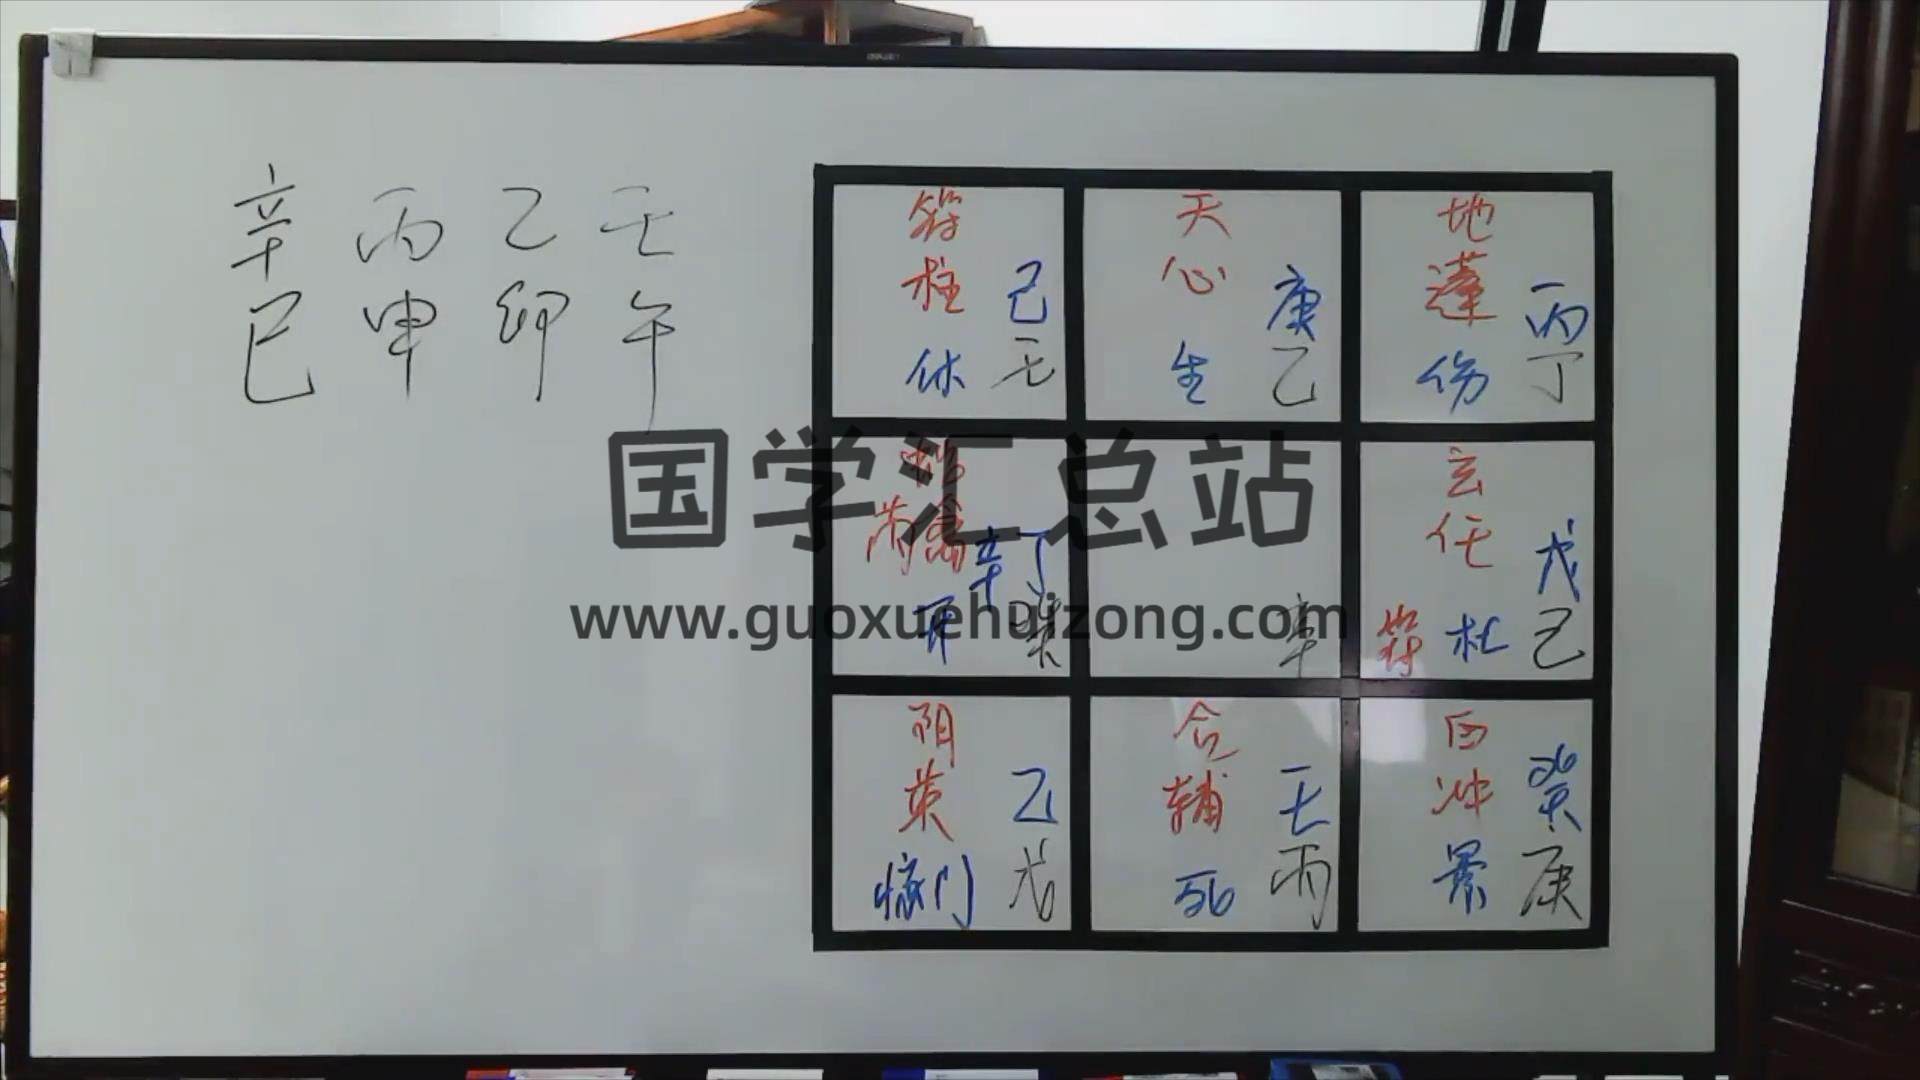 辛 丙 乙 壬
巳 申 卯 午
符
柱 己
休 壬
天
心 庚
生 乙
地
蓬 丙
伤 丁
芮禽 辛丁
开 癸
辛
玄
任 戊
符 杜 己
阴
英 乙
惊门 戊
合
辅 壬
死 丙
白
冲 癸
景 庚
国学汇总站
www.guoxuehuizong.com